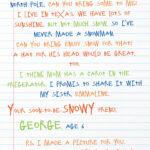 NORTH POLE. CAN YOU BRING SOME TO ME?
I LIVE IN TEXAS WE HAVE LOTS OF
SUNSHINE. BUT NOT MUCH SNOW SO I'VE
NEVER MADE A SNOWMAN.
CAN YOU BRING ENUFF SNOW FOR THAT?
A HAT FOR HIS HEAD WOULD BE GREAT.
TOO
I THINK MOM HAS A CAROT IN THE
I PROMIS TO SHARE IT WITH
MY SISTR EMMALINE.
YOUR SOON TO BE SNOWY FREND,
GEORGE AGE 6
P.S. I MADE A PICTURE FOR YOU